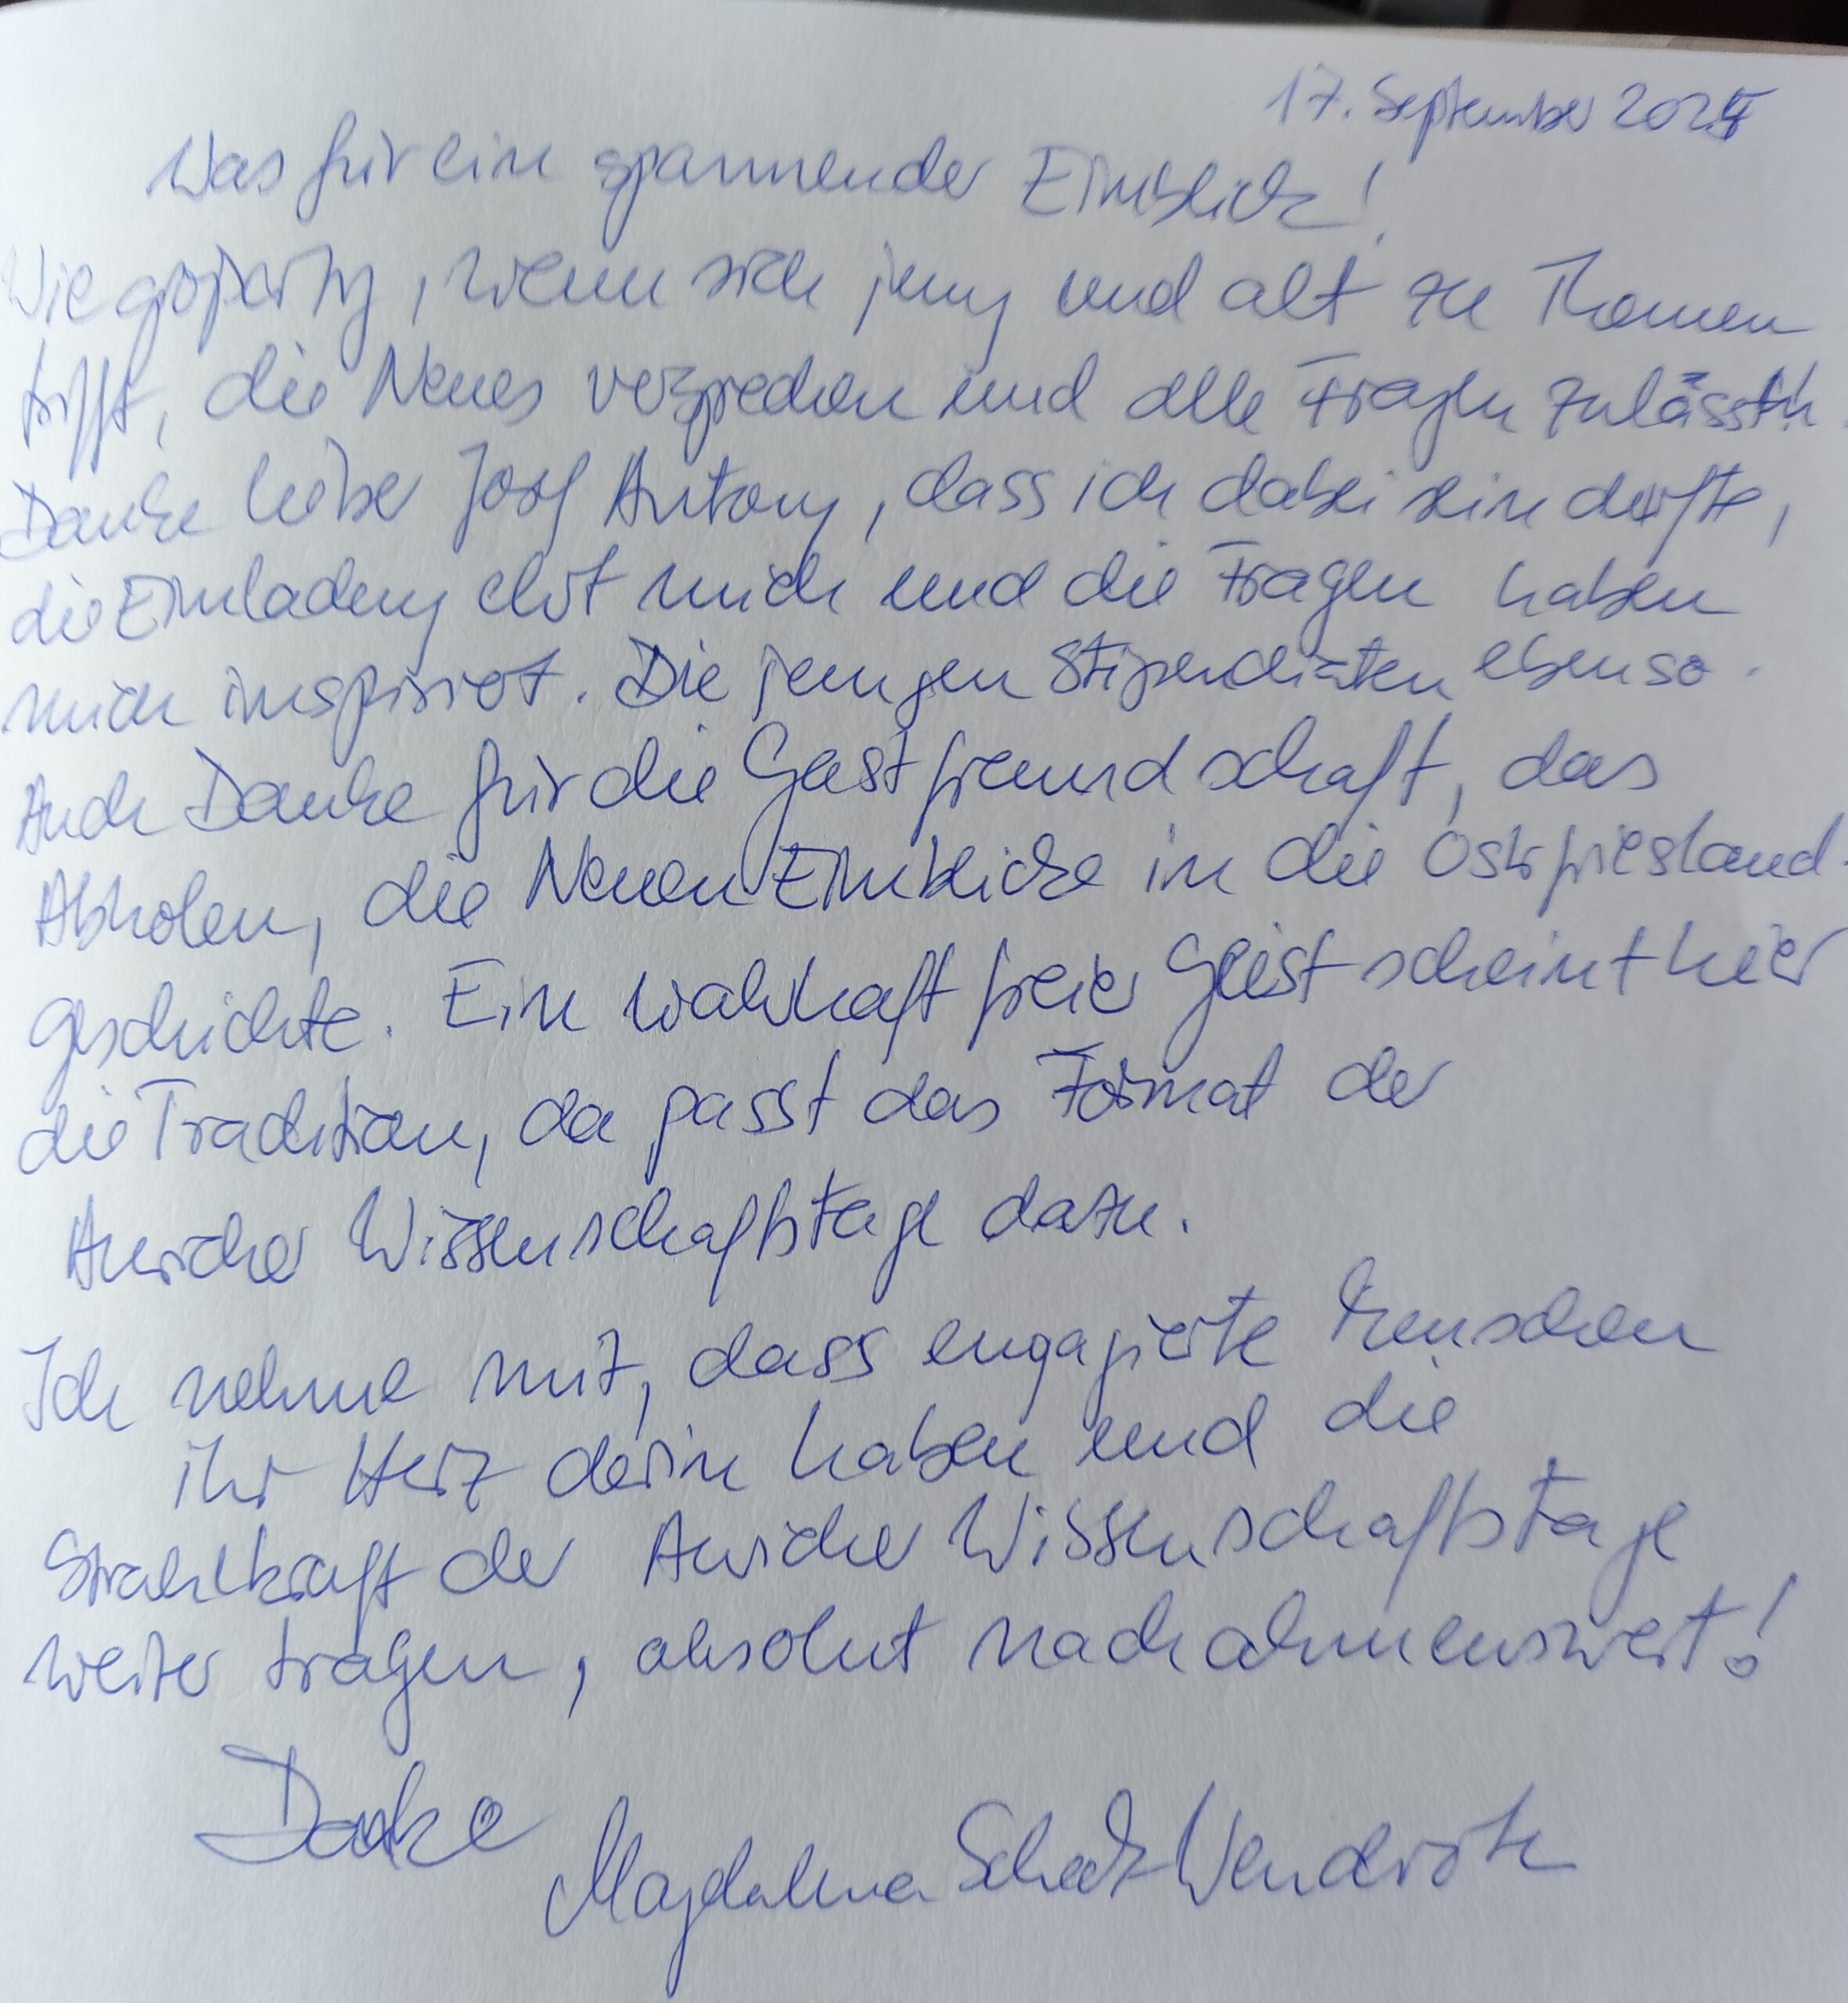 17. September 2024
Was für ein spannender Einblick!
Wie großartig, wenn sich jung und alt zu Themen
trifft, die Neues versprechen und alle Fragen zulässt!!
Danke lieber Josef Antony, dass ich dabei sein durfte,
die Einladung ehrt mich und die Fragen haben
mich inspiriert. Die jungen Stipendiaten ebenso.
Auch Danke für die Gastfreundschaft, das
Abholen, die Neuen Einblicke in die Ostfriesland-
geschichte. Ein wahrhaft freier Geist scheint hier
die Tradition, da passt das Format der
Auricher Wissenschaftstage dazu.
Ich nehme mit, dass engagierte Menschen
ihr Herz darin haben und die
Strahlkraft der Auricher Wissenschaftstage
weiter tragen, absolut nachahmenswert!
Danke
Magdalena